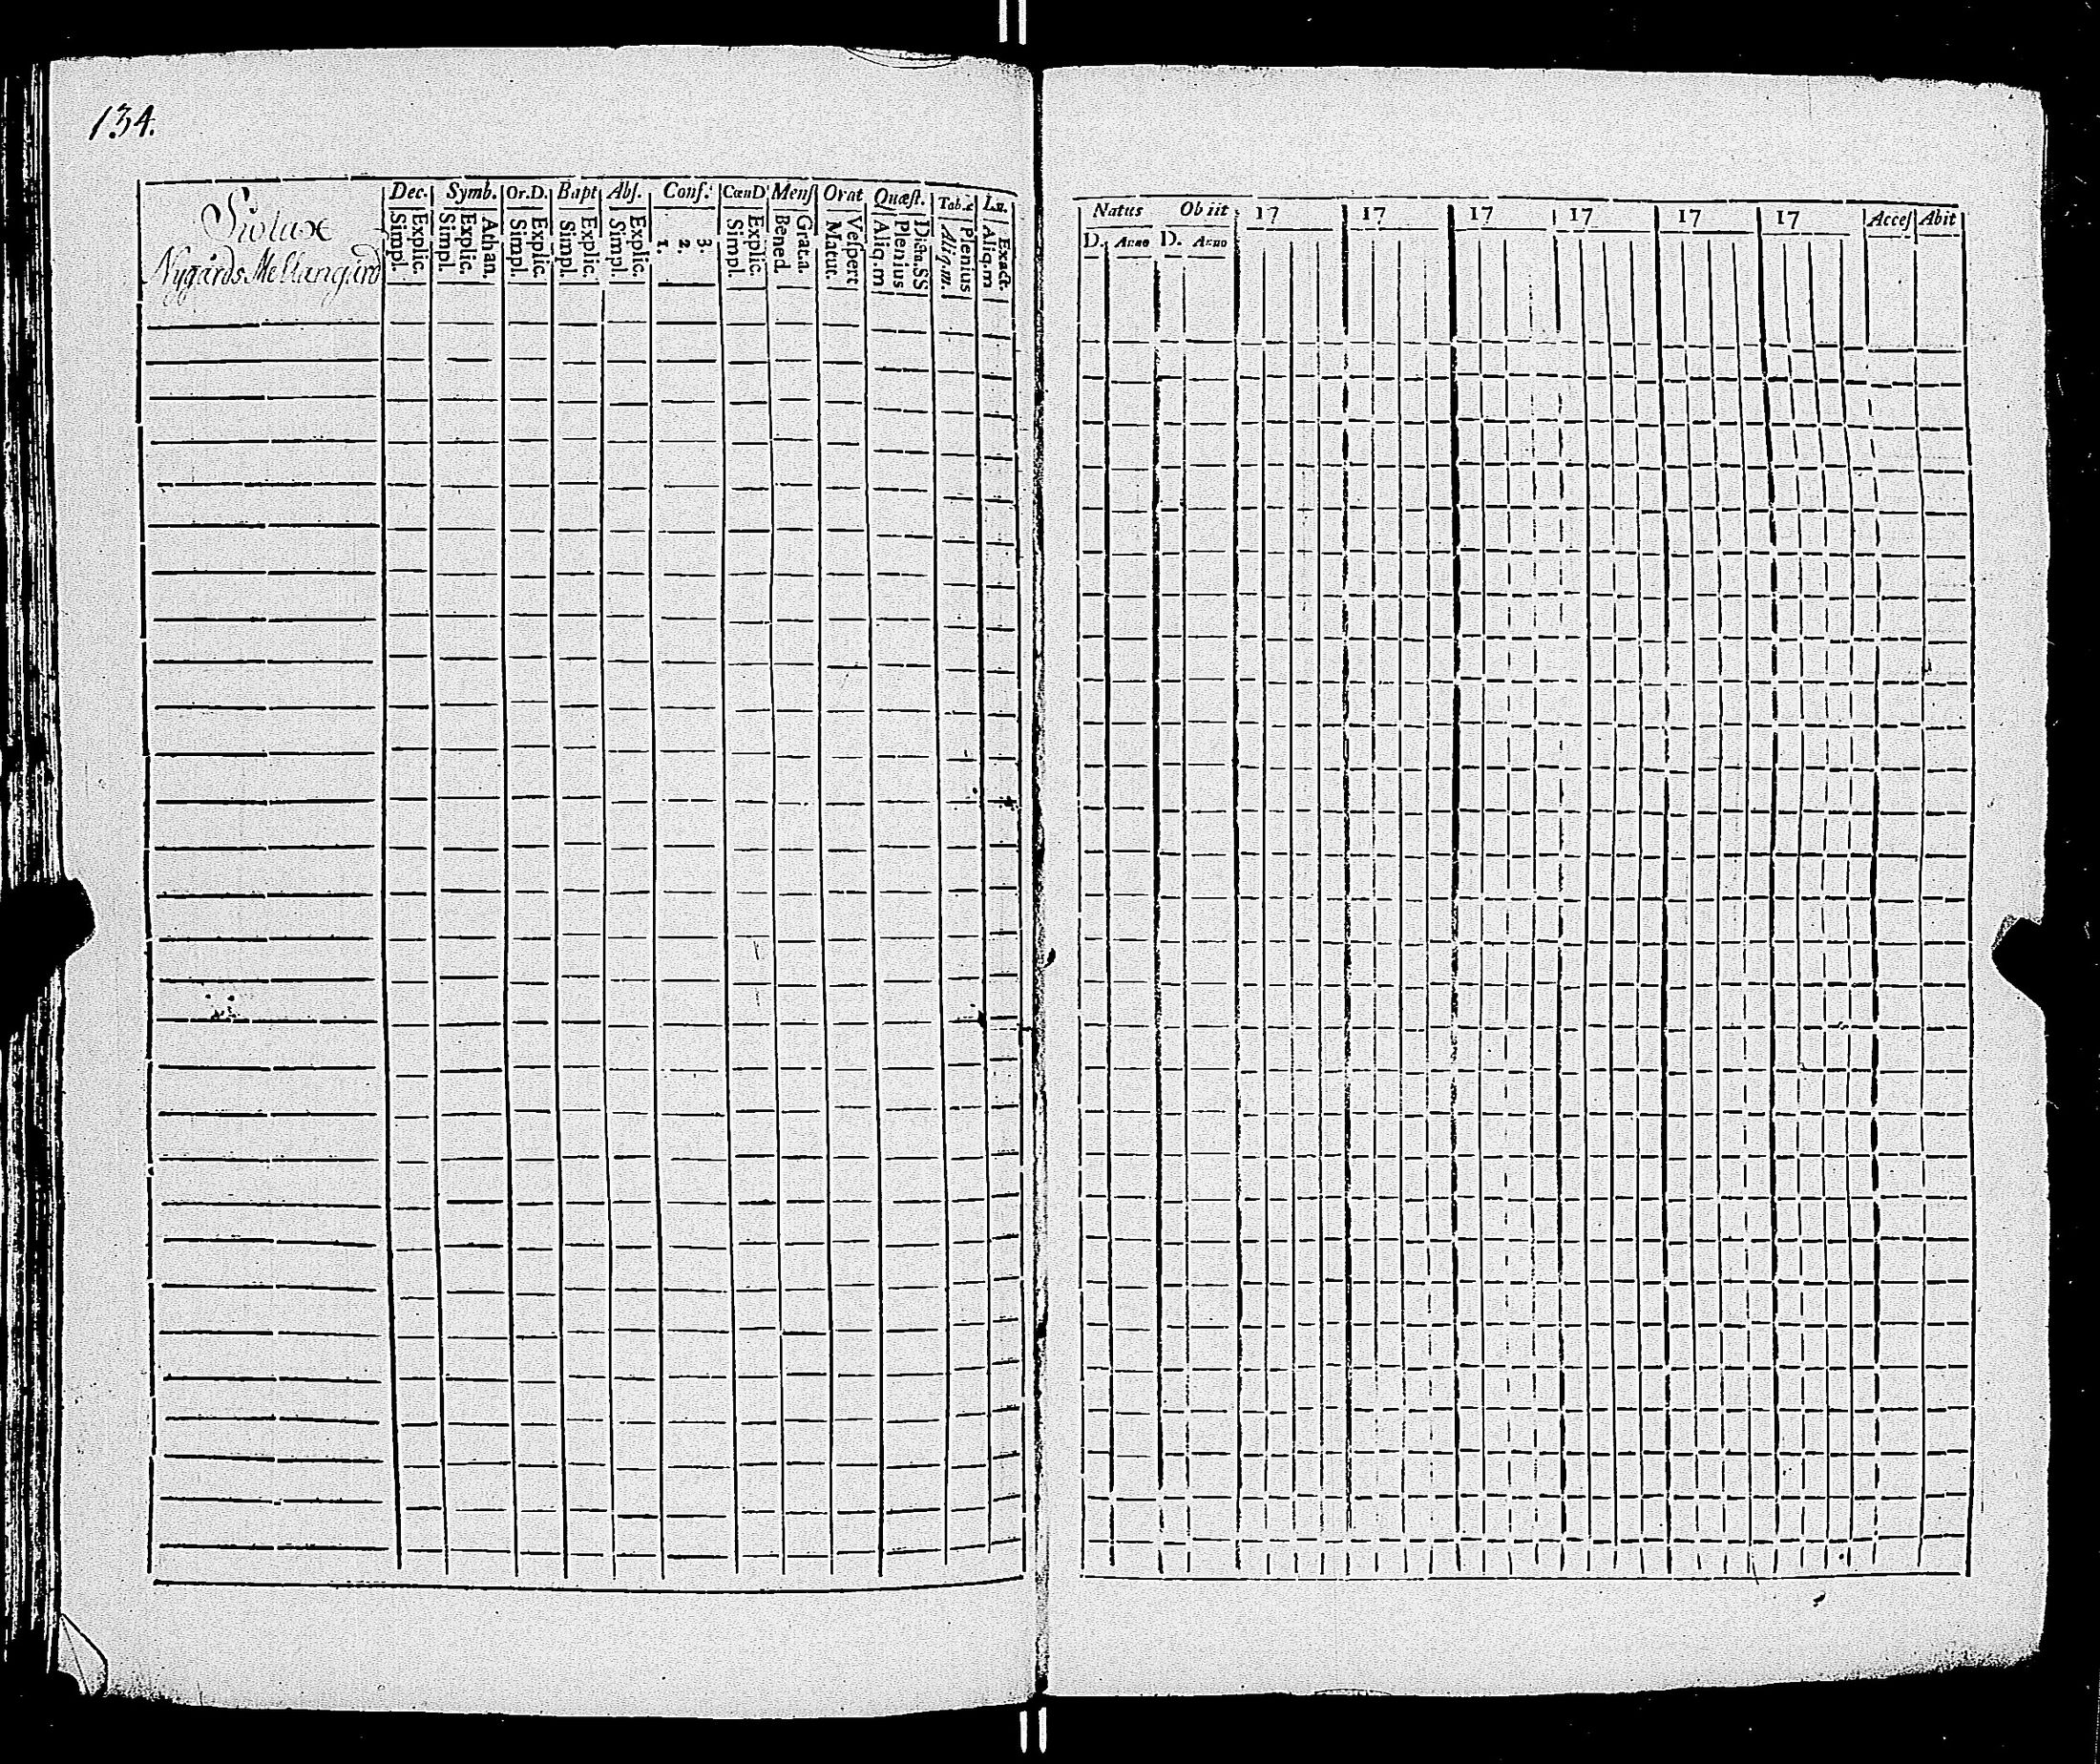 134.
Siolax
Nygårds Mellangård
Dec. Symb. Or.D. Bapt Abſ. Conf. CœnD Menſ Orat Quæſt. Tab.æ Lu.
Explic. Simpl.
Athan. Explic. Simpl.
Explic. Simpl.
Explic. Simpl.
Explic. Simpl.
3. 2. 1.
Explic. Simpl.
Grat.a. Bened.
Veſpert Matut.
Dicta.SS Plenius Aliq.m
Plenius Aliq.m.
Exact. Aliq.m
Natus Obiit 17 17 17 17 17 17 Acceſ Abit
D. Anno D. Anno